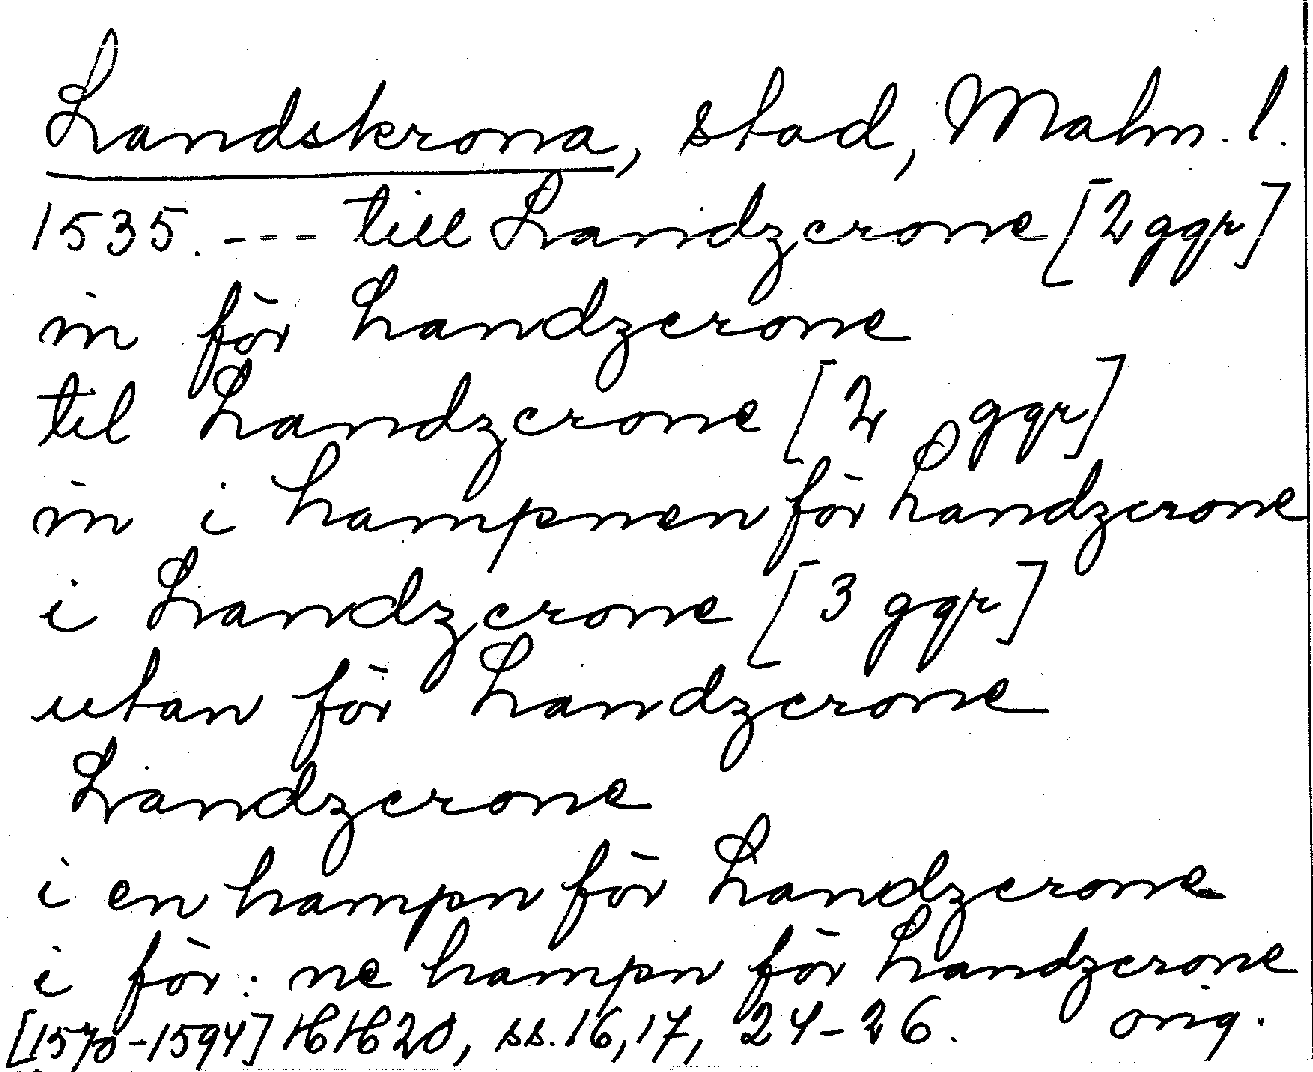 Landskrona, stad, Malm. l.
1535. --- till Landzcrone [2 ggr]
in för Landzcrone
til Landzcrone [2 ggr]
in i hampnen för Landzcrone
i Landzcrone [3 ggr]
utan för Landzcrone
Landzcrone
i en hampn för Landzcrone
i för: ne hampn för Landzcrone
[1570-1594] HH 20, ss. 16, 17, 24-26. orig.